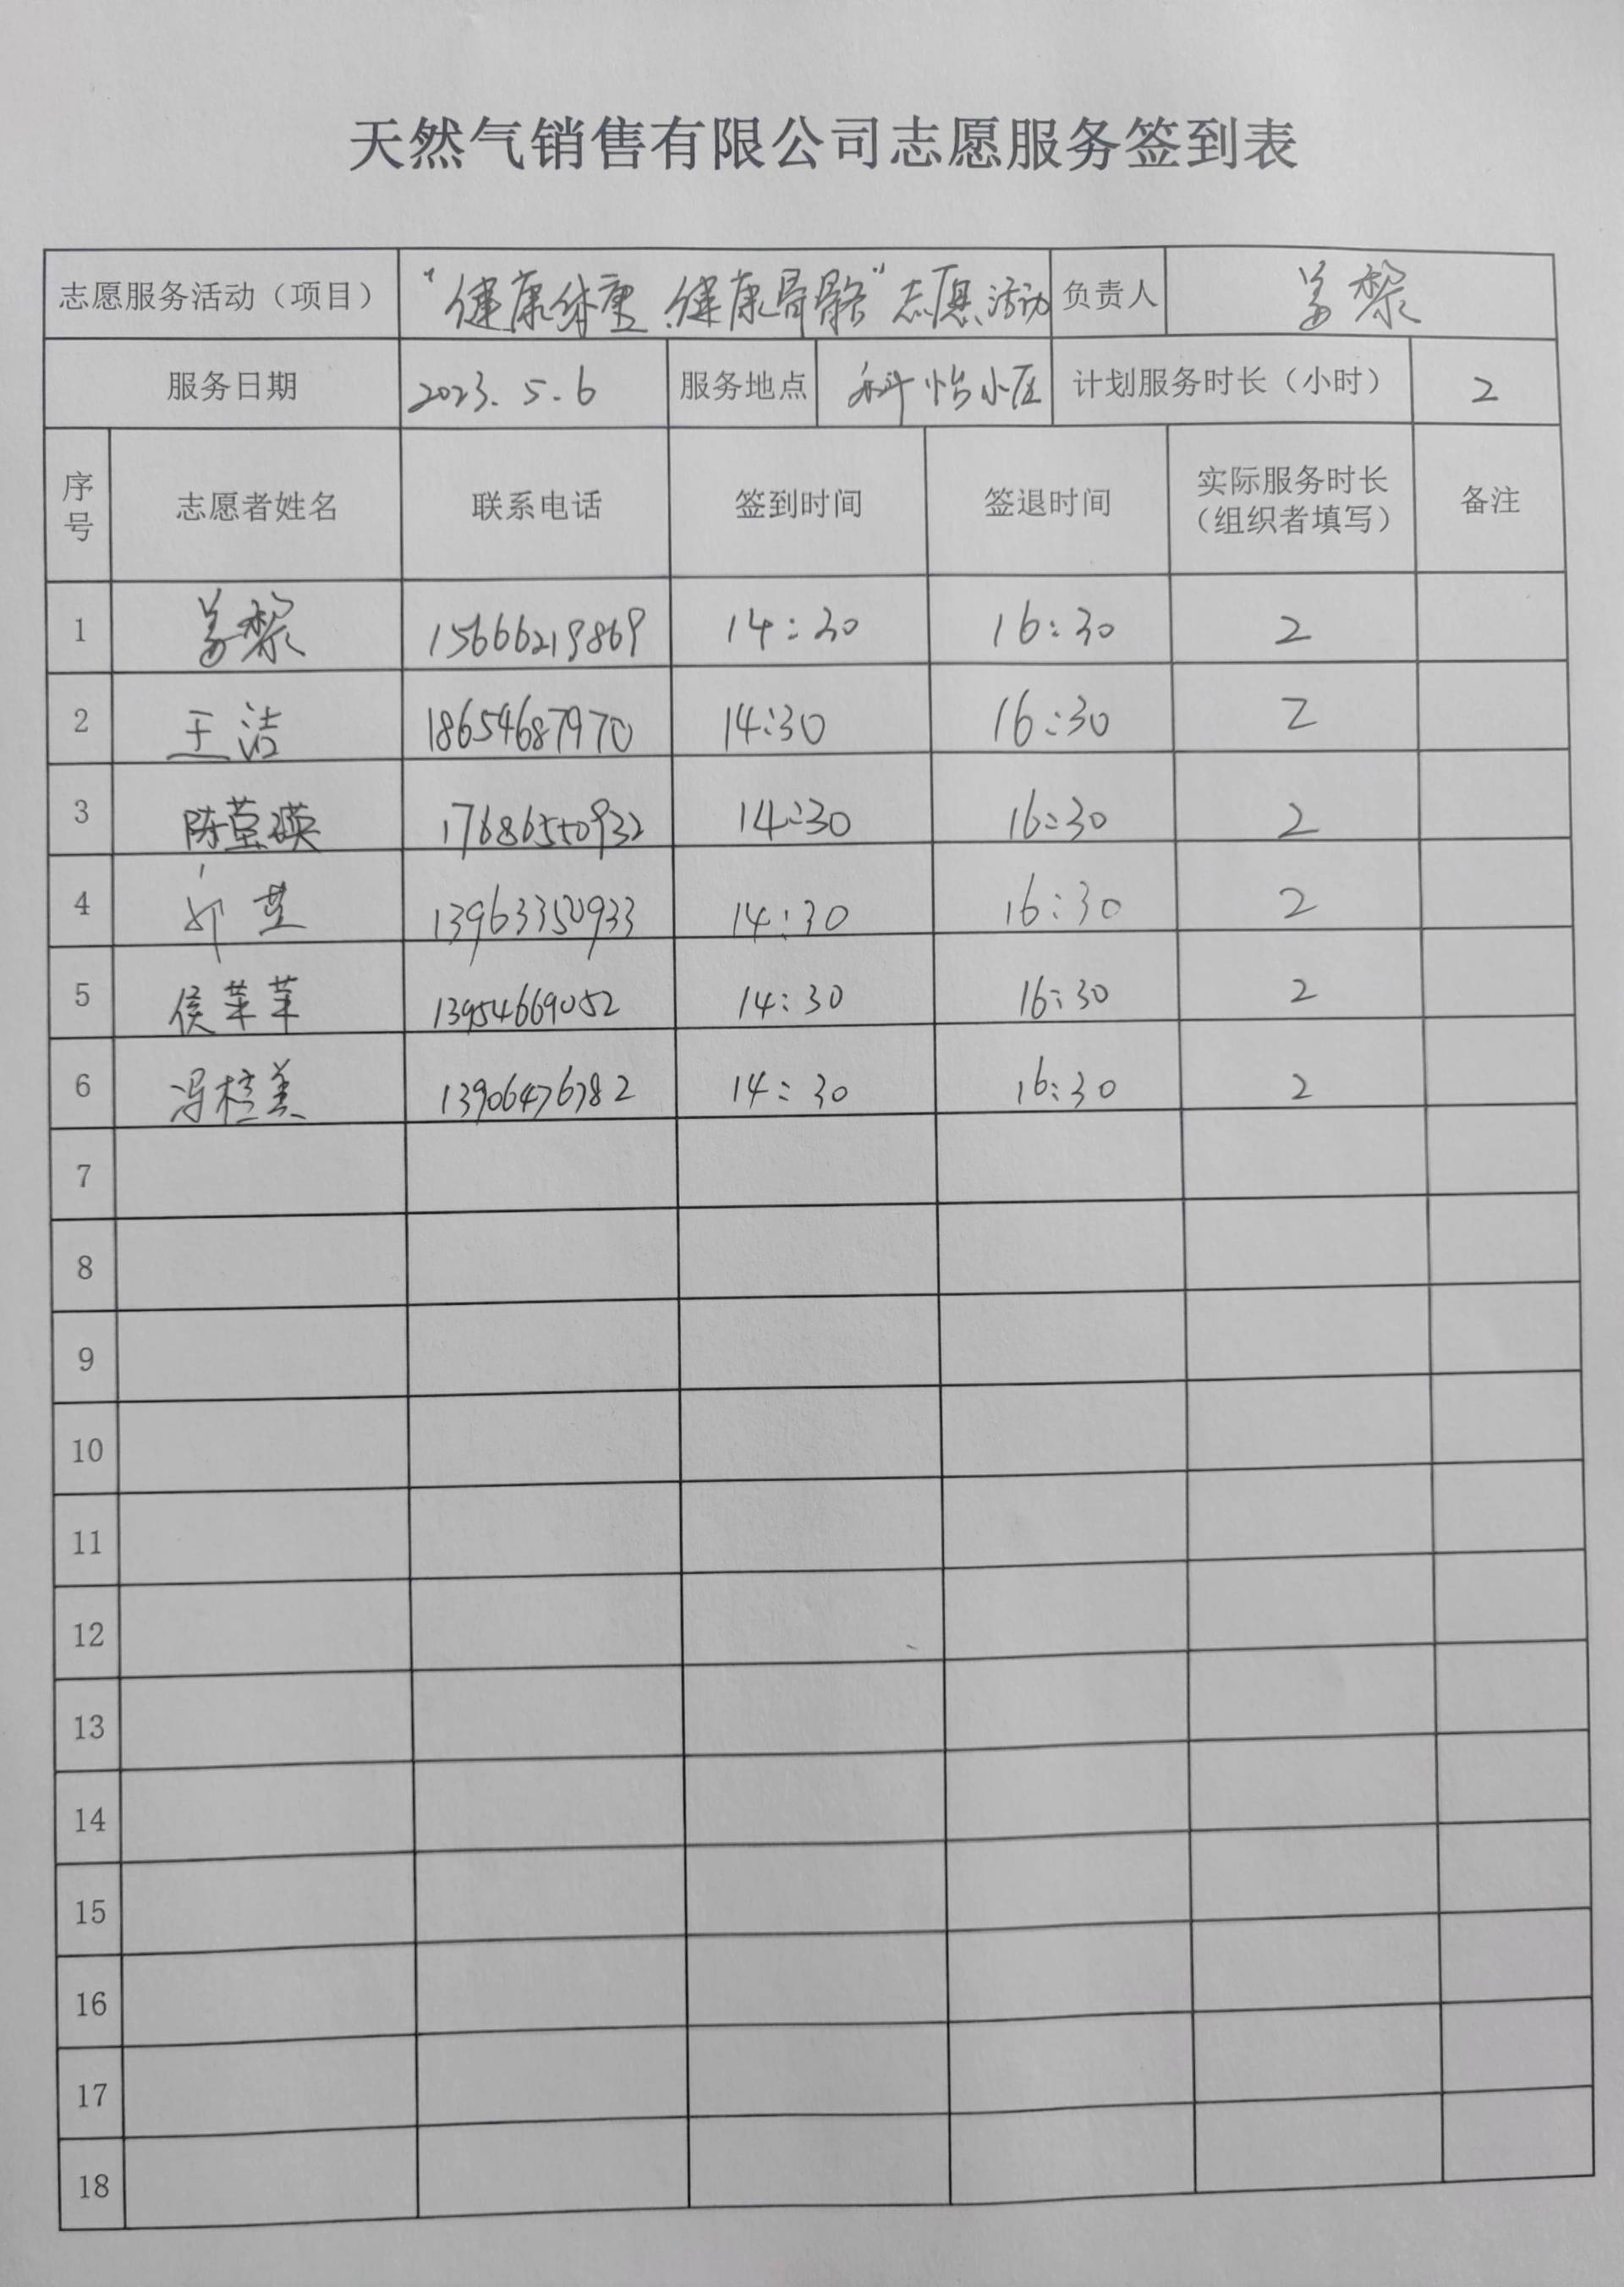 天然气销售有限公司志愿服务签到表
志愿服务活动（项目） “健康体重、健康骨骼”志愿活动 负责人 姜黎
服务日期 2023.5.6 服务地点 科怡小区 计划服务时长（小时） 2
序号 志愿者姓名 联系电话 签到时间 签退时间 实际服务时长（组织者填写） 备注
1 姜黎 15666219869 14:30 16:30 2
2 王洁 18654687970 14:30 16:30 2
3 陈莹瑛 17686550932 14:30 16:30 2
4 13963350933 14:30 16:30 2
5 侯苹苹 13954669052 14:30 16:30 2
6 冯桂美 13906476782 14:30 16:30 2
7
8
9
10
11
12
13
14
15
16
17
18